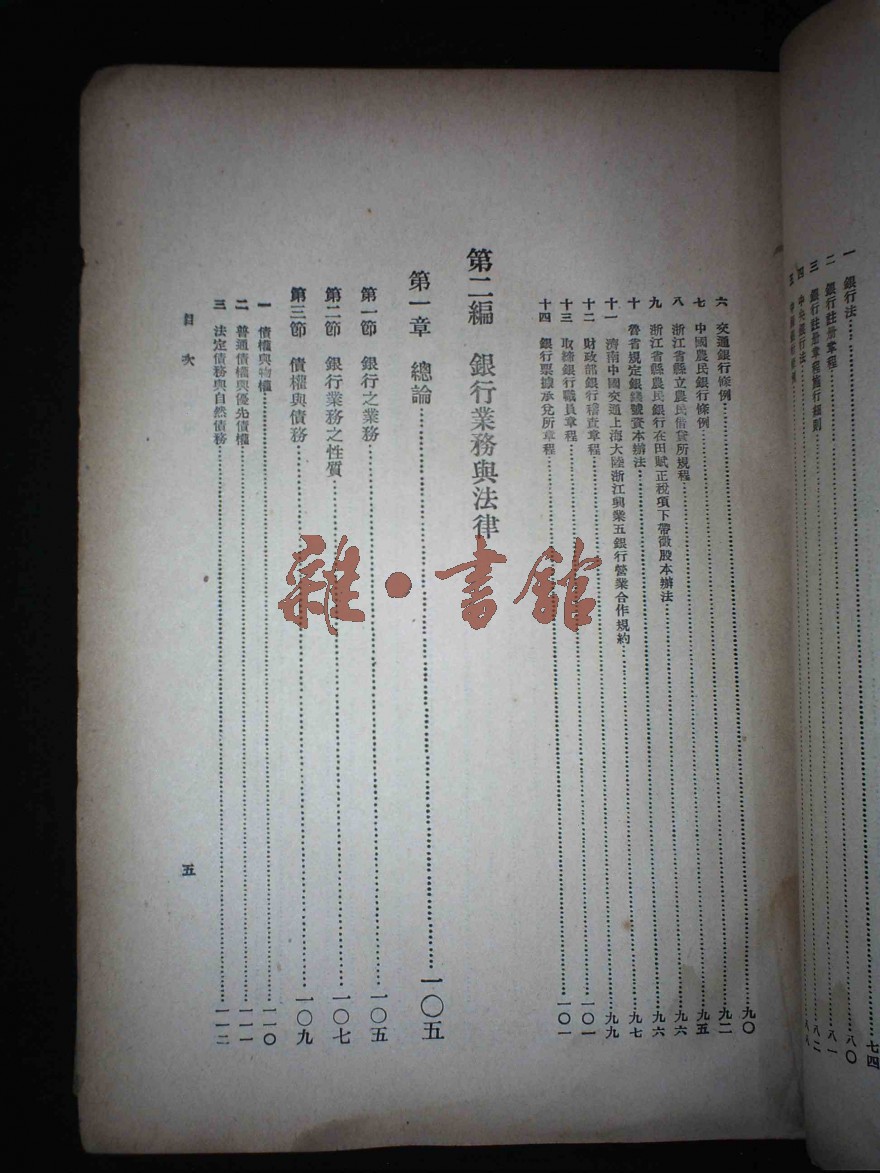 一 銀行法……七四
二 銀行註册章程……八〇
三 銀行註册章程施行細則……八一
四 中央銀行法……八二
六 交通銀行條例……九〇
七 中國農民銀行條例……九二
八 浙江省縣立農民借貸所規程……九五
九 浙江省縣農民銀行在田賦正稅項下帶徵股本辦法……九六
十 魯省規定銀錢號資本辦法……九六
十一 濟南中國交通上海大陸浙江興業五銀行營業合作規約……九七
十二 財政部銀行稽查章程……九九
十三 取締銀行職員章程……一〇一
十四 銀行票據承兌所章程……一〇一
第二編 銀行業務與法律
第一章 總論……一〇五
第一節 銀行之業務……一〇五
第二節 銀行業務之性質……一〇七
第三節 債權與債務……一〇九
一 債權與物權……一一〇
二 普通債權與優先債權……一一一
三 法定債務與自然債務……一一二
目次 五
雜·書館